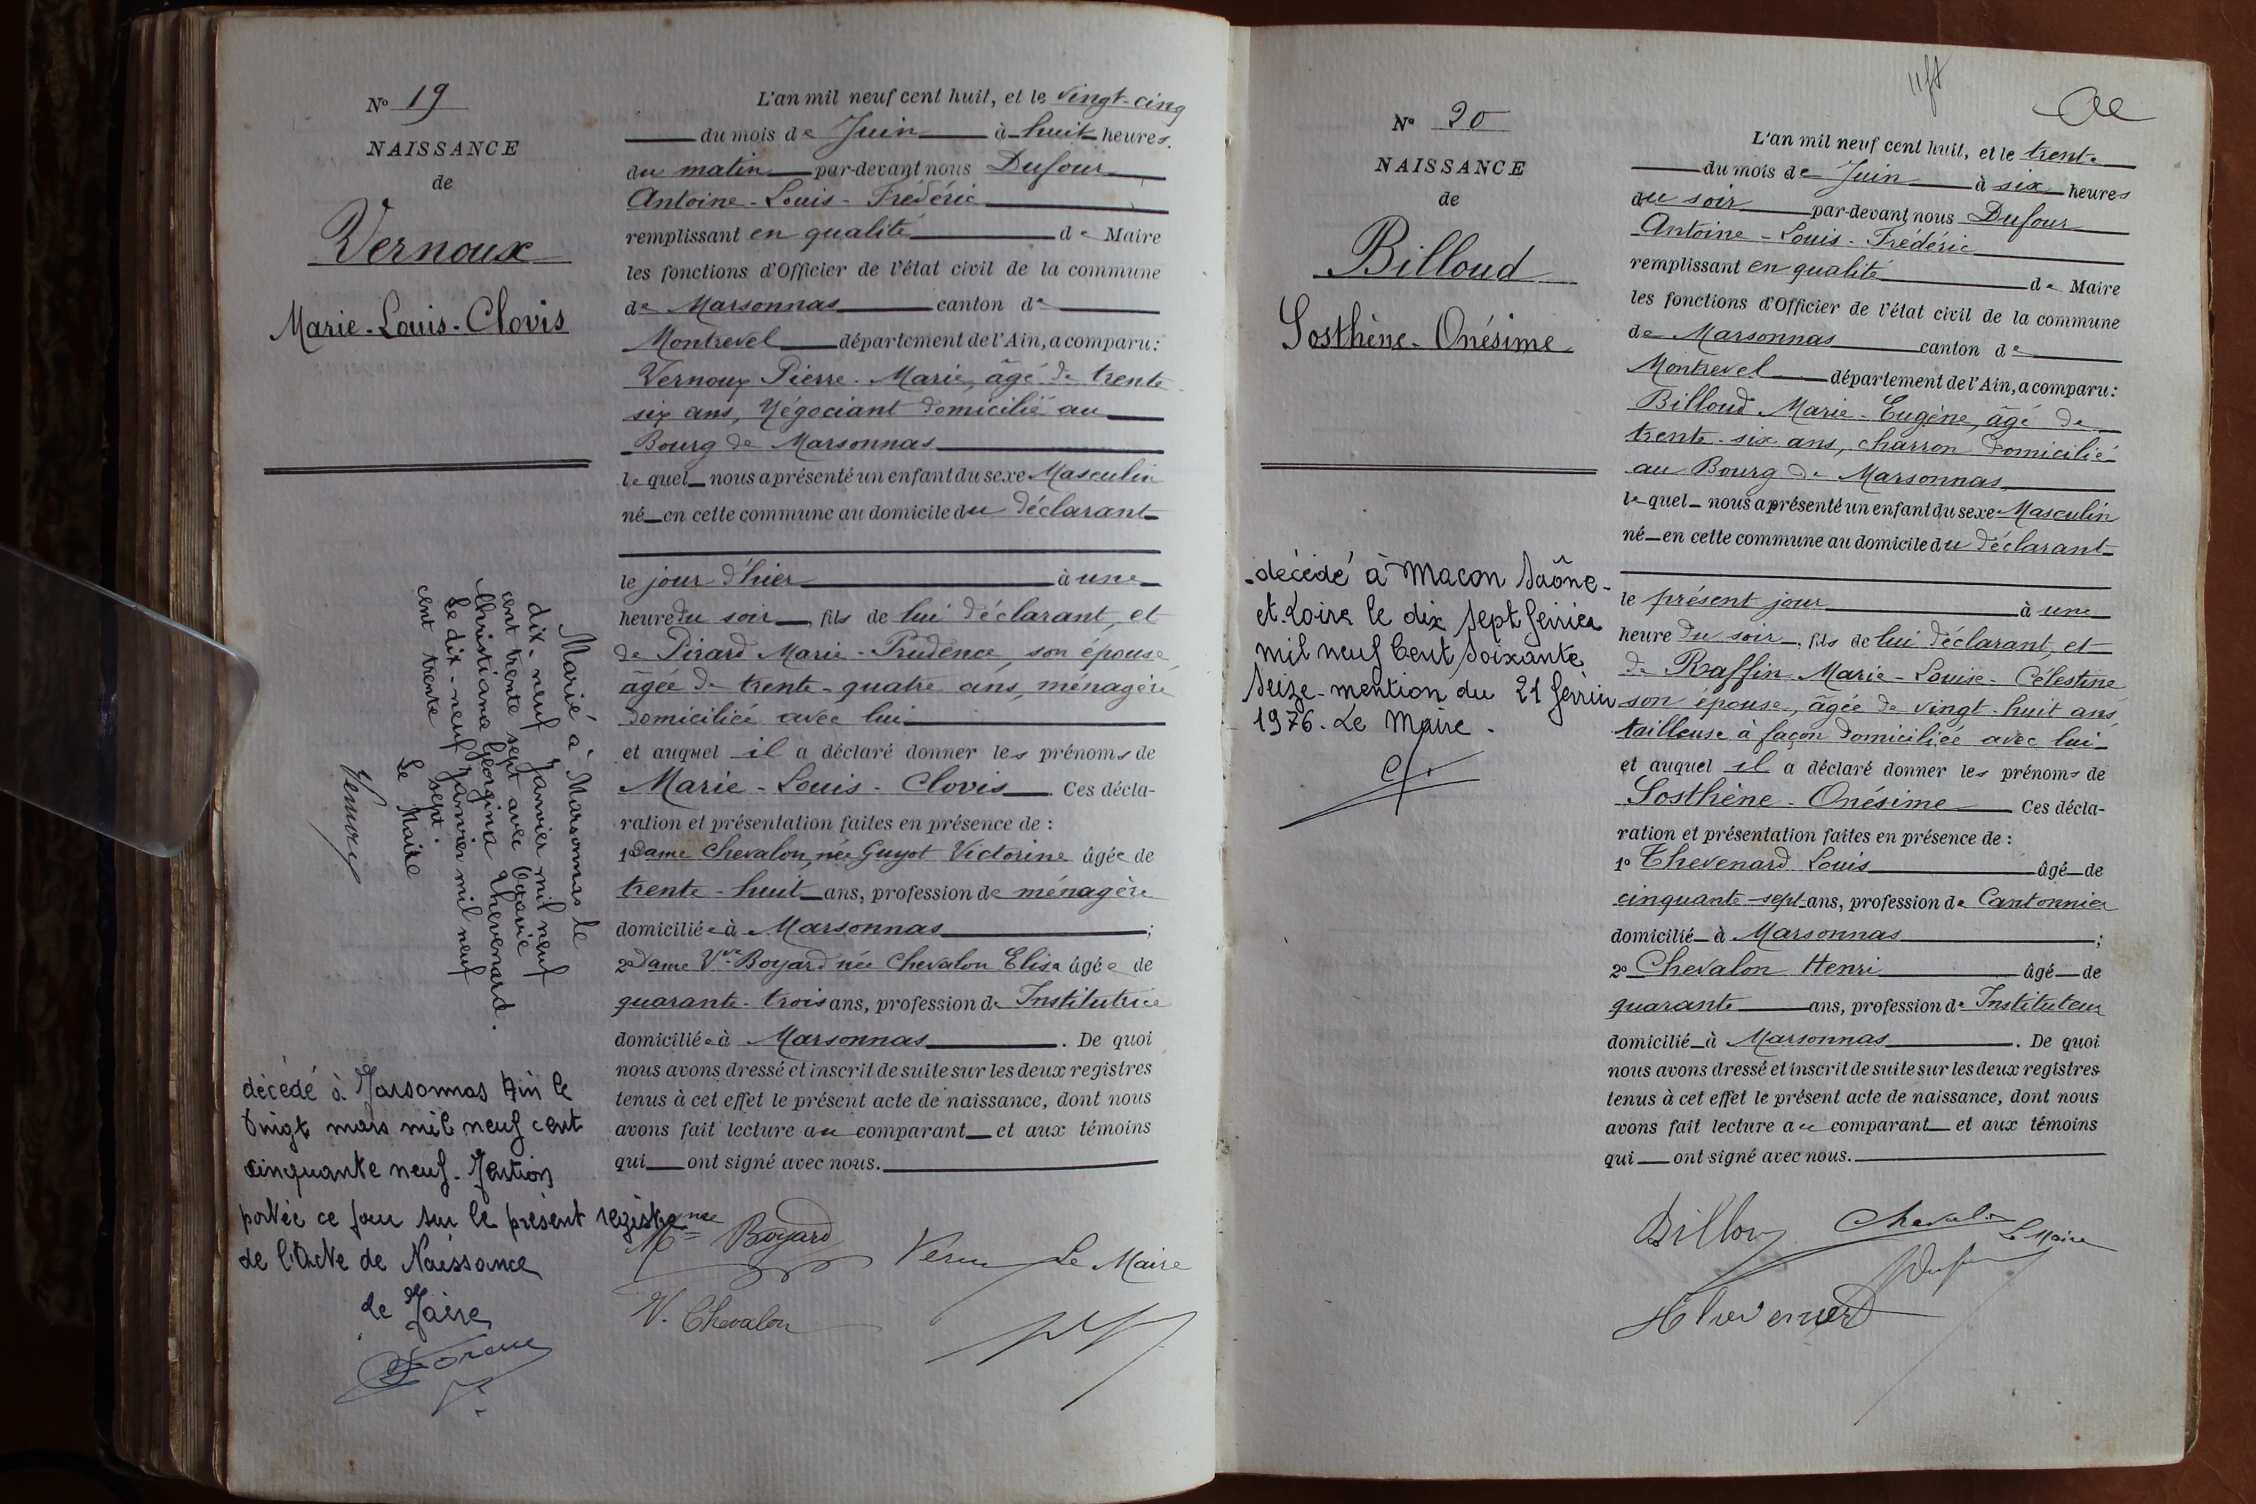 Nº 19
NAISSANCE
de
Vernoux
Marie-Louis-Clovis
Marié à Marsonnas le
dix-neuf Janvier mil neuf
cent trente sept avec
Christiana Georgina Thevenard.
Le dix-neuf Janvier mil neuf
cent trente sept.
Le Maire
décédé à Marsonnas Ain le
Vingt mars mil neuf cent
cinquante neuf. Mention
portée ce jour sur le présent registre
de l'Acte de Naissance
Le Maire
L'an mil neuf cent huit, et le vingt-cinq
du mois de Juin à huit heures
du matin par-devant nous Dufour
Antoine-Louis-Frédéric
remplissant en qualité de Maire
les fonctions d'Officier de l'état civil de la commune
de Marsonnas canton de
Montrevel département de l'Ain, a comparu:
Vernoux Pierre-Marie, âgé de trente
six ans, Négociant domicilié au
Bourg de Marsonnas
lequel nous a présenté un enfant du sexe Masculin
né en cette commune au domicile du déclarant
le jour d'hier à une
heure du soir, fils de lui déclarant, et
de Pirard Marie-Prudence, son épouse,
âgée de trente-quatre ans, ménagère
domiciliée avec lui
et auquel il a déclaré donner les prénoms de
Marie-Louis-Clovis. Ces décla-
ration et présentation faites en présence de :
1º Dame Chevalon, née Guyot Victorine âgée de
trente-huit ans, profession de ménagère
domiciliée à Marsonnas ;
2º Dame Vve Boyard née Chevalon Elisa âgée de
quarante-trois ans, profession de Institutrice
domiciliée à Marsonnas. De quoi
nous avons dressé et inscrit de suite sur les deux registres
tenus à cet effet le présent acte de naissance, dont nous
avons fait lecture au comparant et aux témoins
qui ont signé avec nous.
Boyard
Le Maire
V. Chevalon
Nº 20
NAISSANCE
de
Billoud
Sosthène-Onésime
décédé à Macon Saône-
et-Loire le dix sept février
mil neuf Cent Soixante
Seize-mention du 21 février
1976. Le Maire.
L'an mil neuf cent huit, et le trente
du mois de Juin à six heures
du soir par-devant nous Dufour
Antoine-Louis-Frédéric
remplissant en qualité de Maire
les fonctions d'Officier de l'état civil de la commune
de Marsonnas canton de
Montrevel département de l'Ain, a comparu:
Billoud Marie-Eugène, âgé de
trente-six ans, charron domicilié
au Bourg de Marsonnas
lequel nous a présenté un enfant du sexe Masculin
né en cette commune au domicile du déclarant
le présent jour à une
heure du soir, fils de lui déclarant, et
de Raffin Marie-Louise-Célestine
son épouse, âgée de vingt-huit ans,
tailleuse à façon domiciliée avec lui
et auquel il a déclaré donner les prénoms de
Sosthène-Onésime Ces décla-
ration et présentation faites en présence de :
1º Thevenard Louis âgé de
cinquante-sept ans, profession de Cantonnier
domicilié à Marsonnas ;
2º Chevalon Henri âgé de
quarante ans, profession de Instituteur
domicilié à Marsonnas. De quoi
nous avons dressé et inscrit de suite sur les deux registres
tenus à cet effet le présent acte de naissance, dont nous
avons fait lecture au comparant et aux témoins
qui ont signé avec nous.
Chevalon
Le Maire